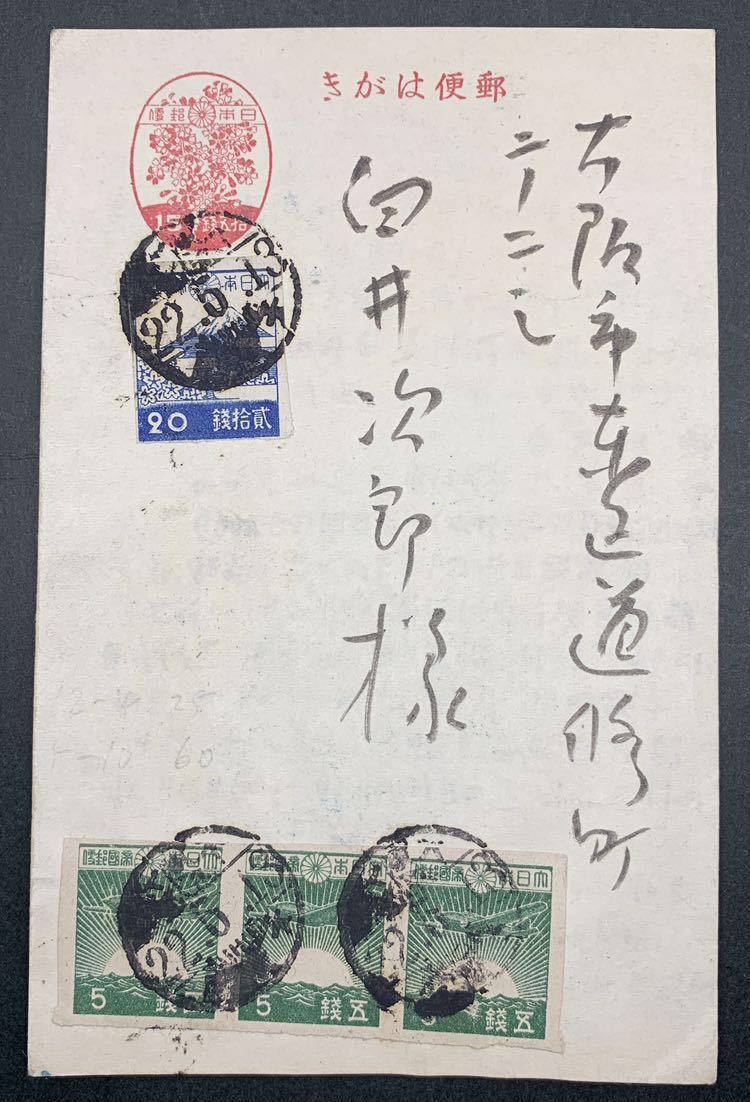 郵便はがき
大阪市東区道修町
二ノ二二
臼井次郎様
日本郵便
15 拾五銭
22.5.13
大日本
20 貳拾銭
12-4 25
60
大日本帝國郵便
大日本帝國郵便
大日本帝國郵便
5 五銭
5 五銭
5 五銭